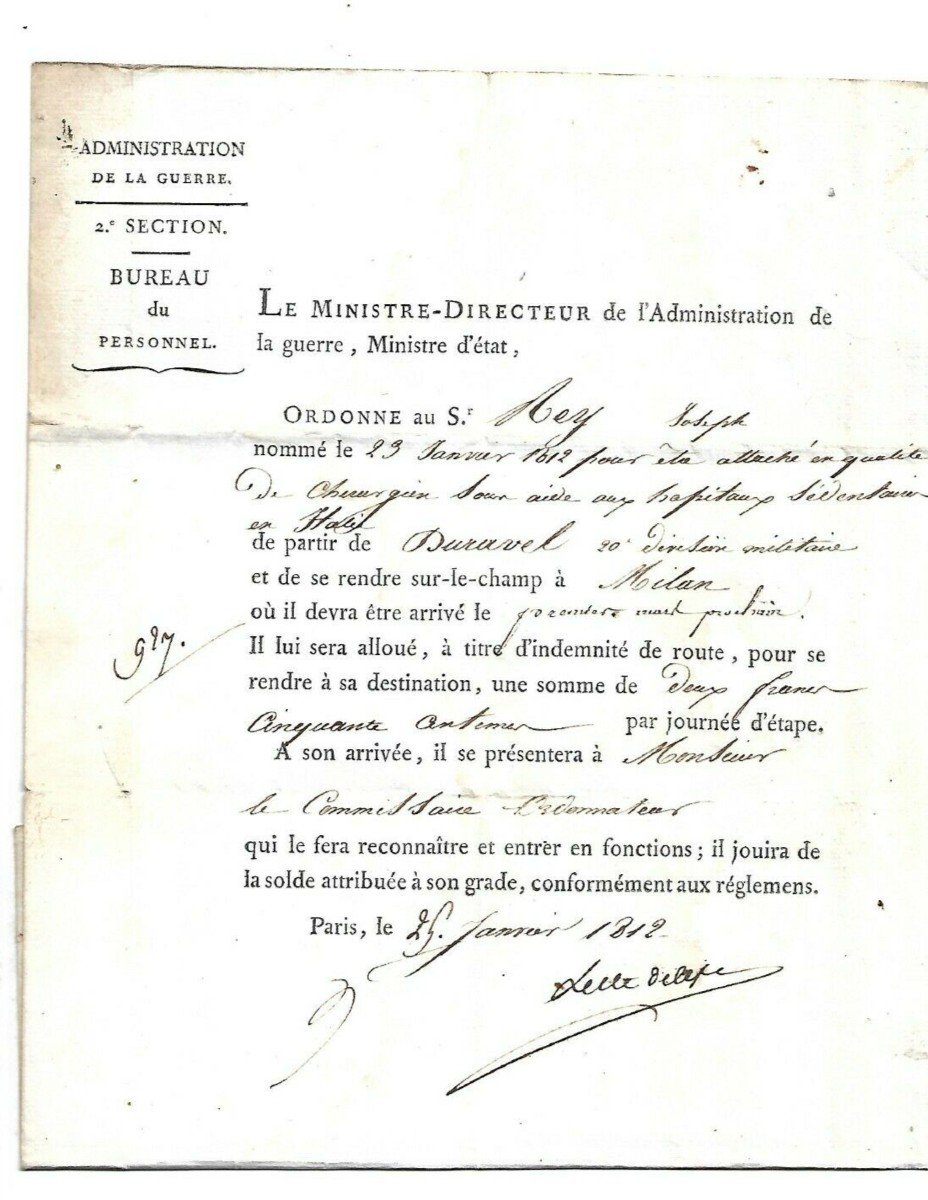 ADMINISTRATION
DE LA GUERRE.
2.e SECTION.
BUREAU
du
PERSONNEL.
LE MINISTRE-DIRECTEUR de l'Administration de
la guerre, Ministre d'état,
ORDONNE au S.r Rey Joseph
nommé le 23 Janvier 1812 pour être attaché en qualité
de chirurgien sous aide aux hopitaux sédentaires
en Italie
de partir de Duravel 20e division militaire
et de se rendre sur-le-champ à Milan
où il devra être arrivé le premier mars prochain.
927.
Il lui sera alloué, à titre d'indemnité de route, pour se
rendre à sa destination, une somme de deux francs
Cinquante centimes par journée d'étape.
A son arrivée, il se présentera à Monsieur
le Commissaire Ordonnateur
qui le fera reconnaître et entrer en fonctions; il jouira de
la solde attribuée à son grade, conformément aux réglemens.
Paris, le 25. Janvier 1812